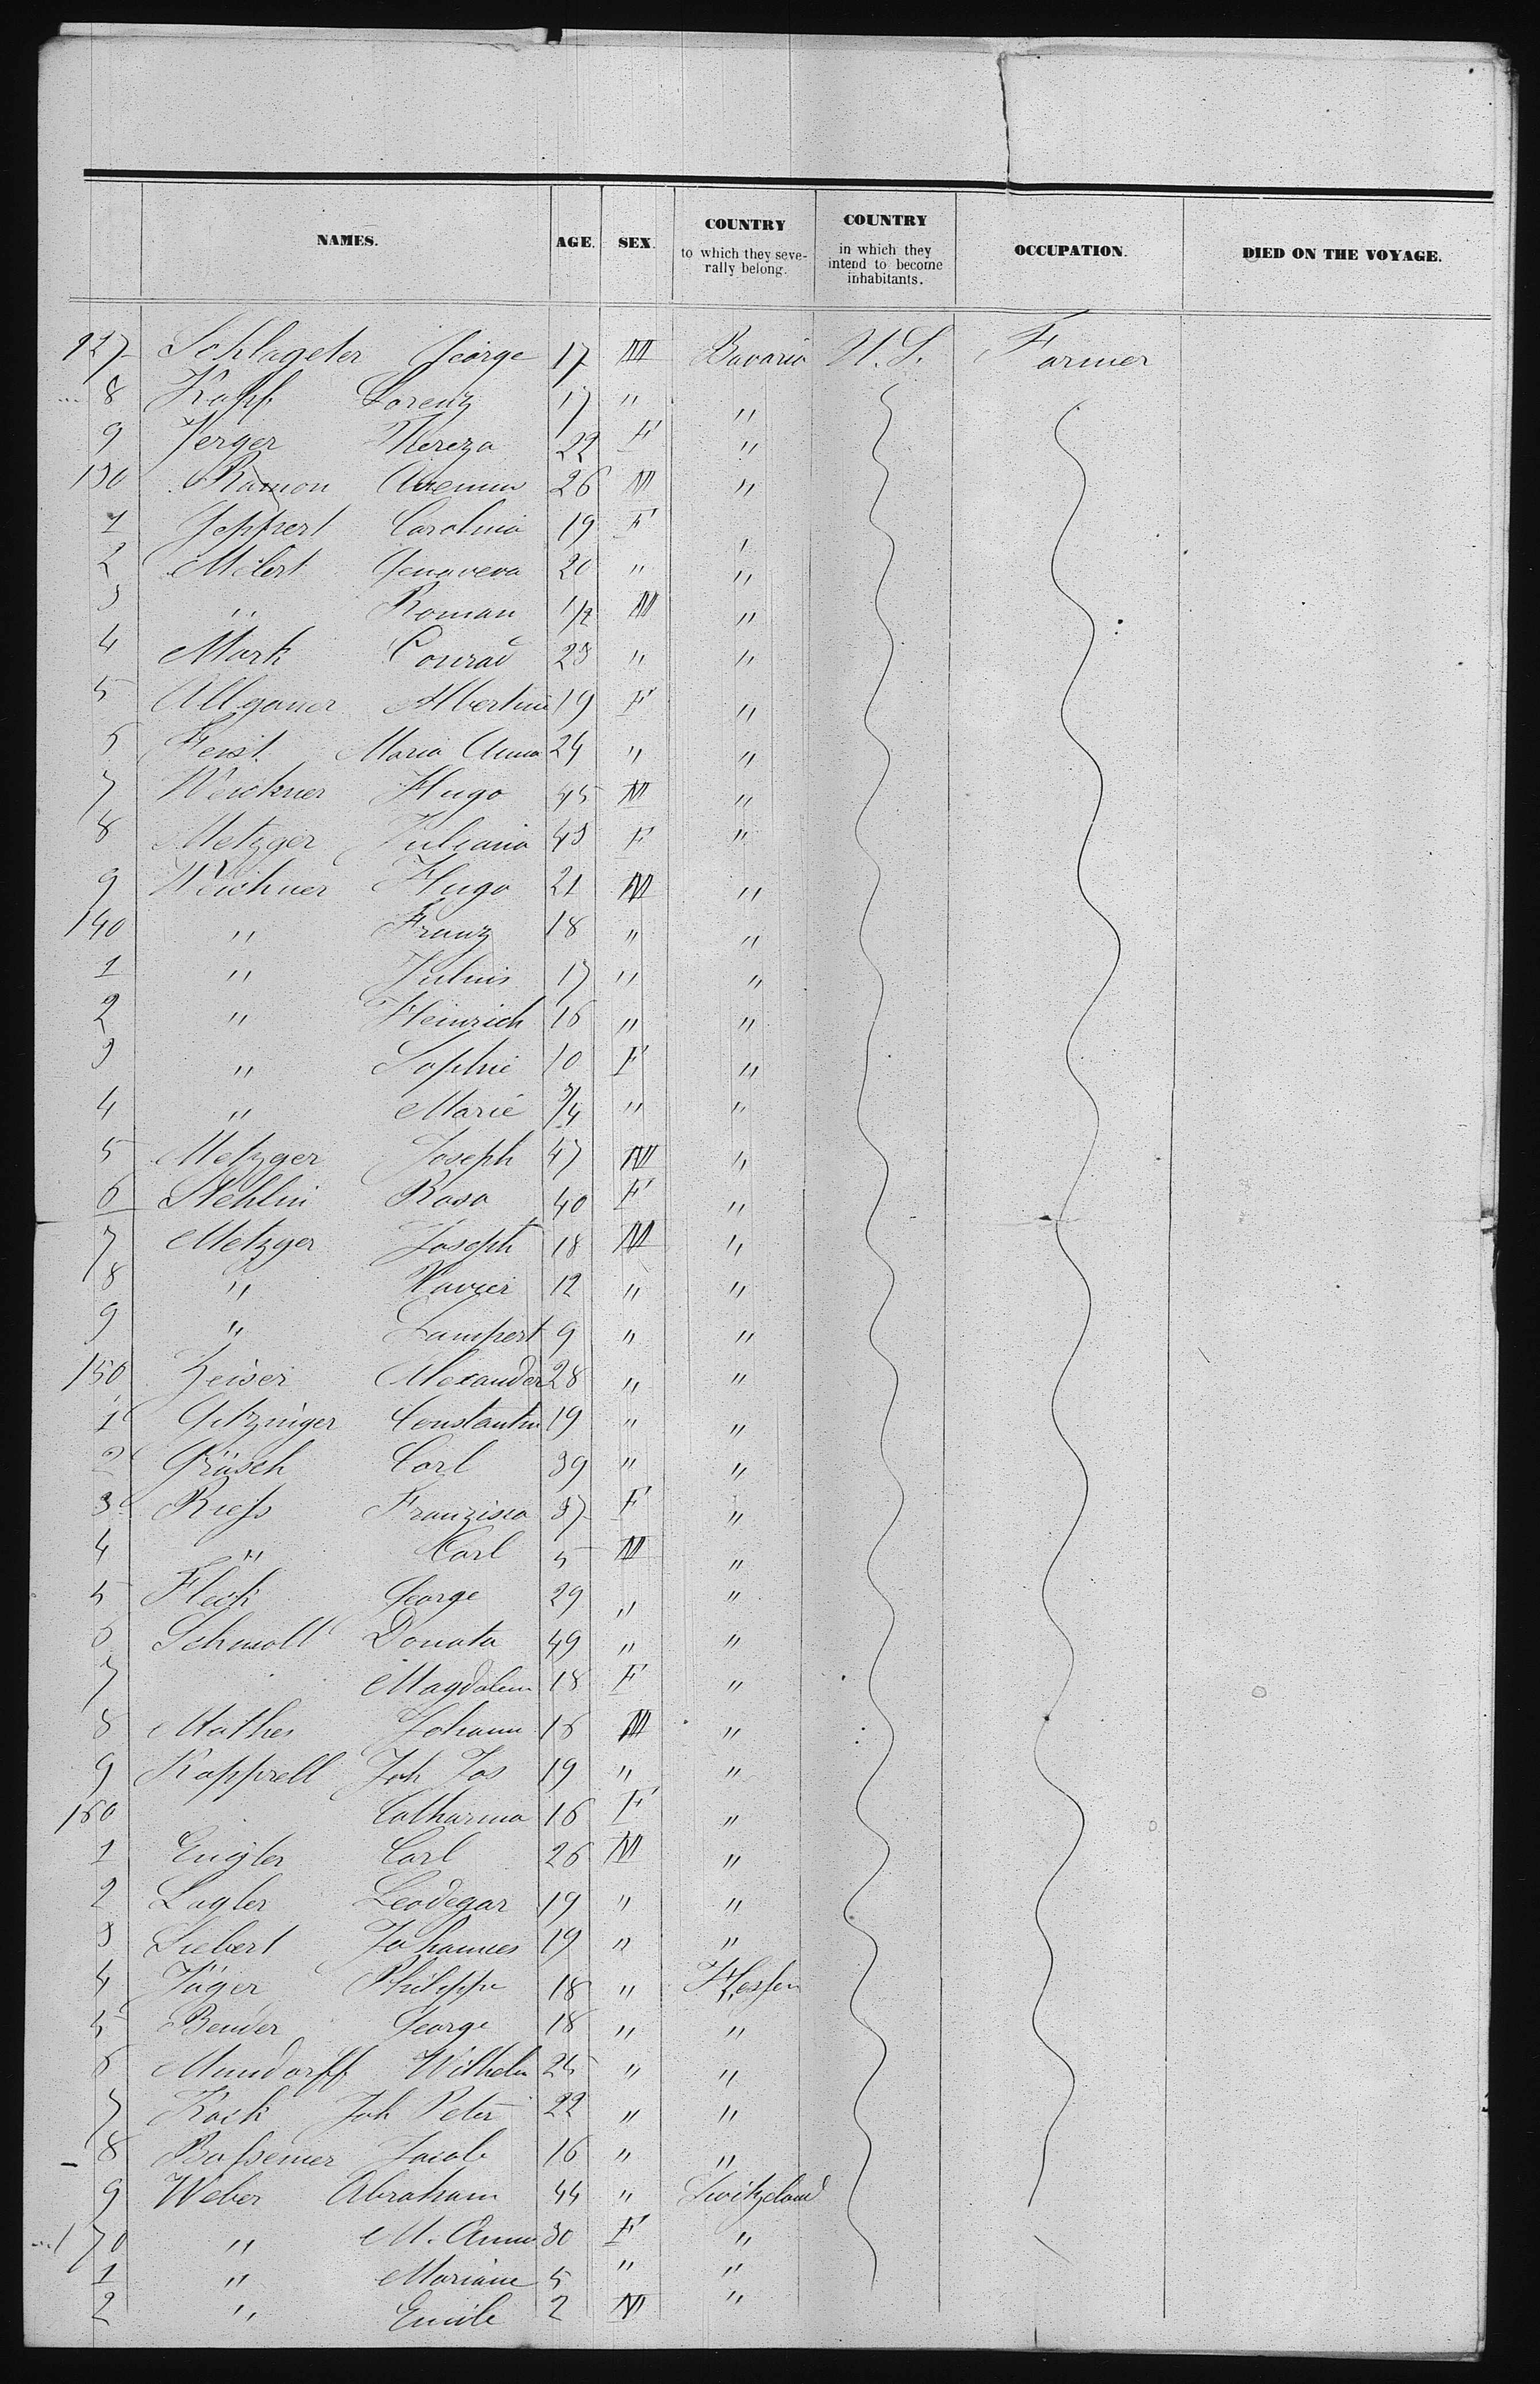 NAMES. AGE. SEX. COUNTRY to which they severally belong. COUNTRY in which they intend to become inhabitants. OCCUPATION. DIED ON THE VOYAGE.
127 Schlageter George 17 M Bavaria U.S. Farmer
8 Kopf Lorenz 17 " "
9 Jerger Thereza 22 F "
130 Ramon 26 M "
1 Joppert Carolina 19 F "
2 Milert Genoveva 20 " "
3 " Roman 1/2 M "
4 Mark Conrad 23 " "
5 Allgauer Albertine 19 F "
6 Feist Maria Anna 24 " "
7 Weichner Hugo 45 M "
8 Metzger Juliana 43 F "
9 Weichner Hugo 21 M "
140 " Franz 18 " "
1 " Julius 17 " "
2 " Heinrich 16 " "
3 " Sophie 10 F "
4 " Marie 3/4 " "
5 Metzger Joseph 47 M "
6 Stehlin Rosa 40 F "
7 Metzger Joseph 18 M "
8 " Xavier 12 " "
9 " Lampert 9 " "
150 Zeiser Alexander 28 " "
1 Gitzinger Constantin 19 " "
2 Gräsch Carl 39 " "
3 Rieſs Franzisca 37 F "
4 " Karl 5 M "
5 Fleck George 29 " "
6 Schmoll Donata 49 " "
7 Magdalena 18 F "
8 Mathes Johann 16 M "
9 Kapprell Joh Jos 19 " "
160 Catharina 16 F "
1 Engler Carl 26 M "
2 Lagler Leodegar 19 " "
3 Siebert Johannes 19 " "
4 Jäger Philippe 18 " Hesſen
5 Bender George 18 " "
6 Mundorff Wilhelm 25 " "
7 Koch Joh Peter 22 " "
8 Baſsemer Jacob 16 " "
9 Weber Abraham 44 " Switzeland
170 " M. Anna 30 F "
1 " Mariane 5 " "
2 " Emile 2 M "